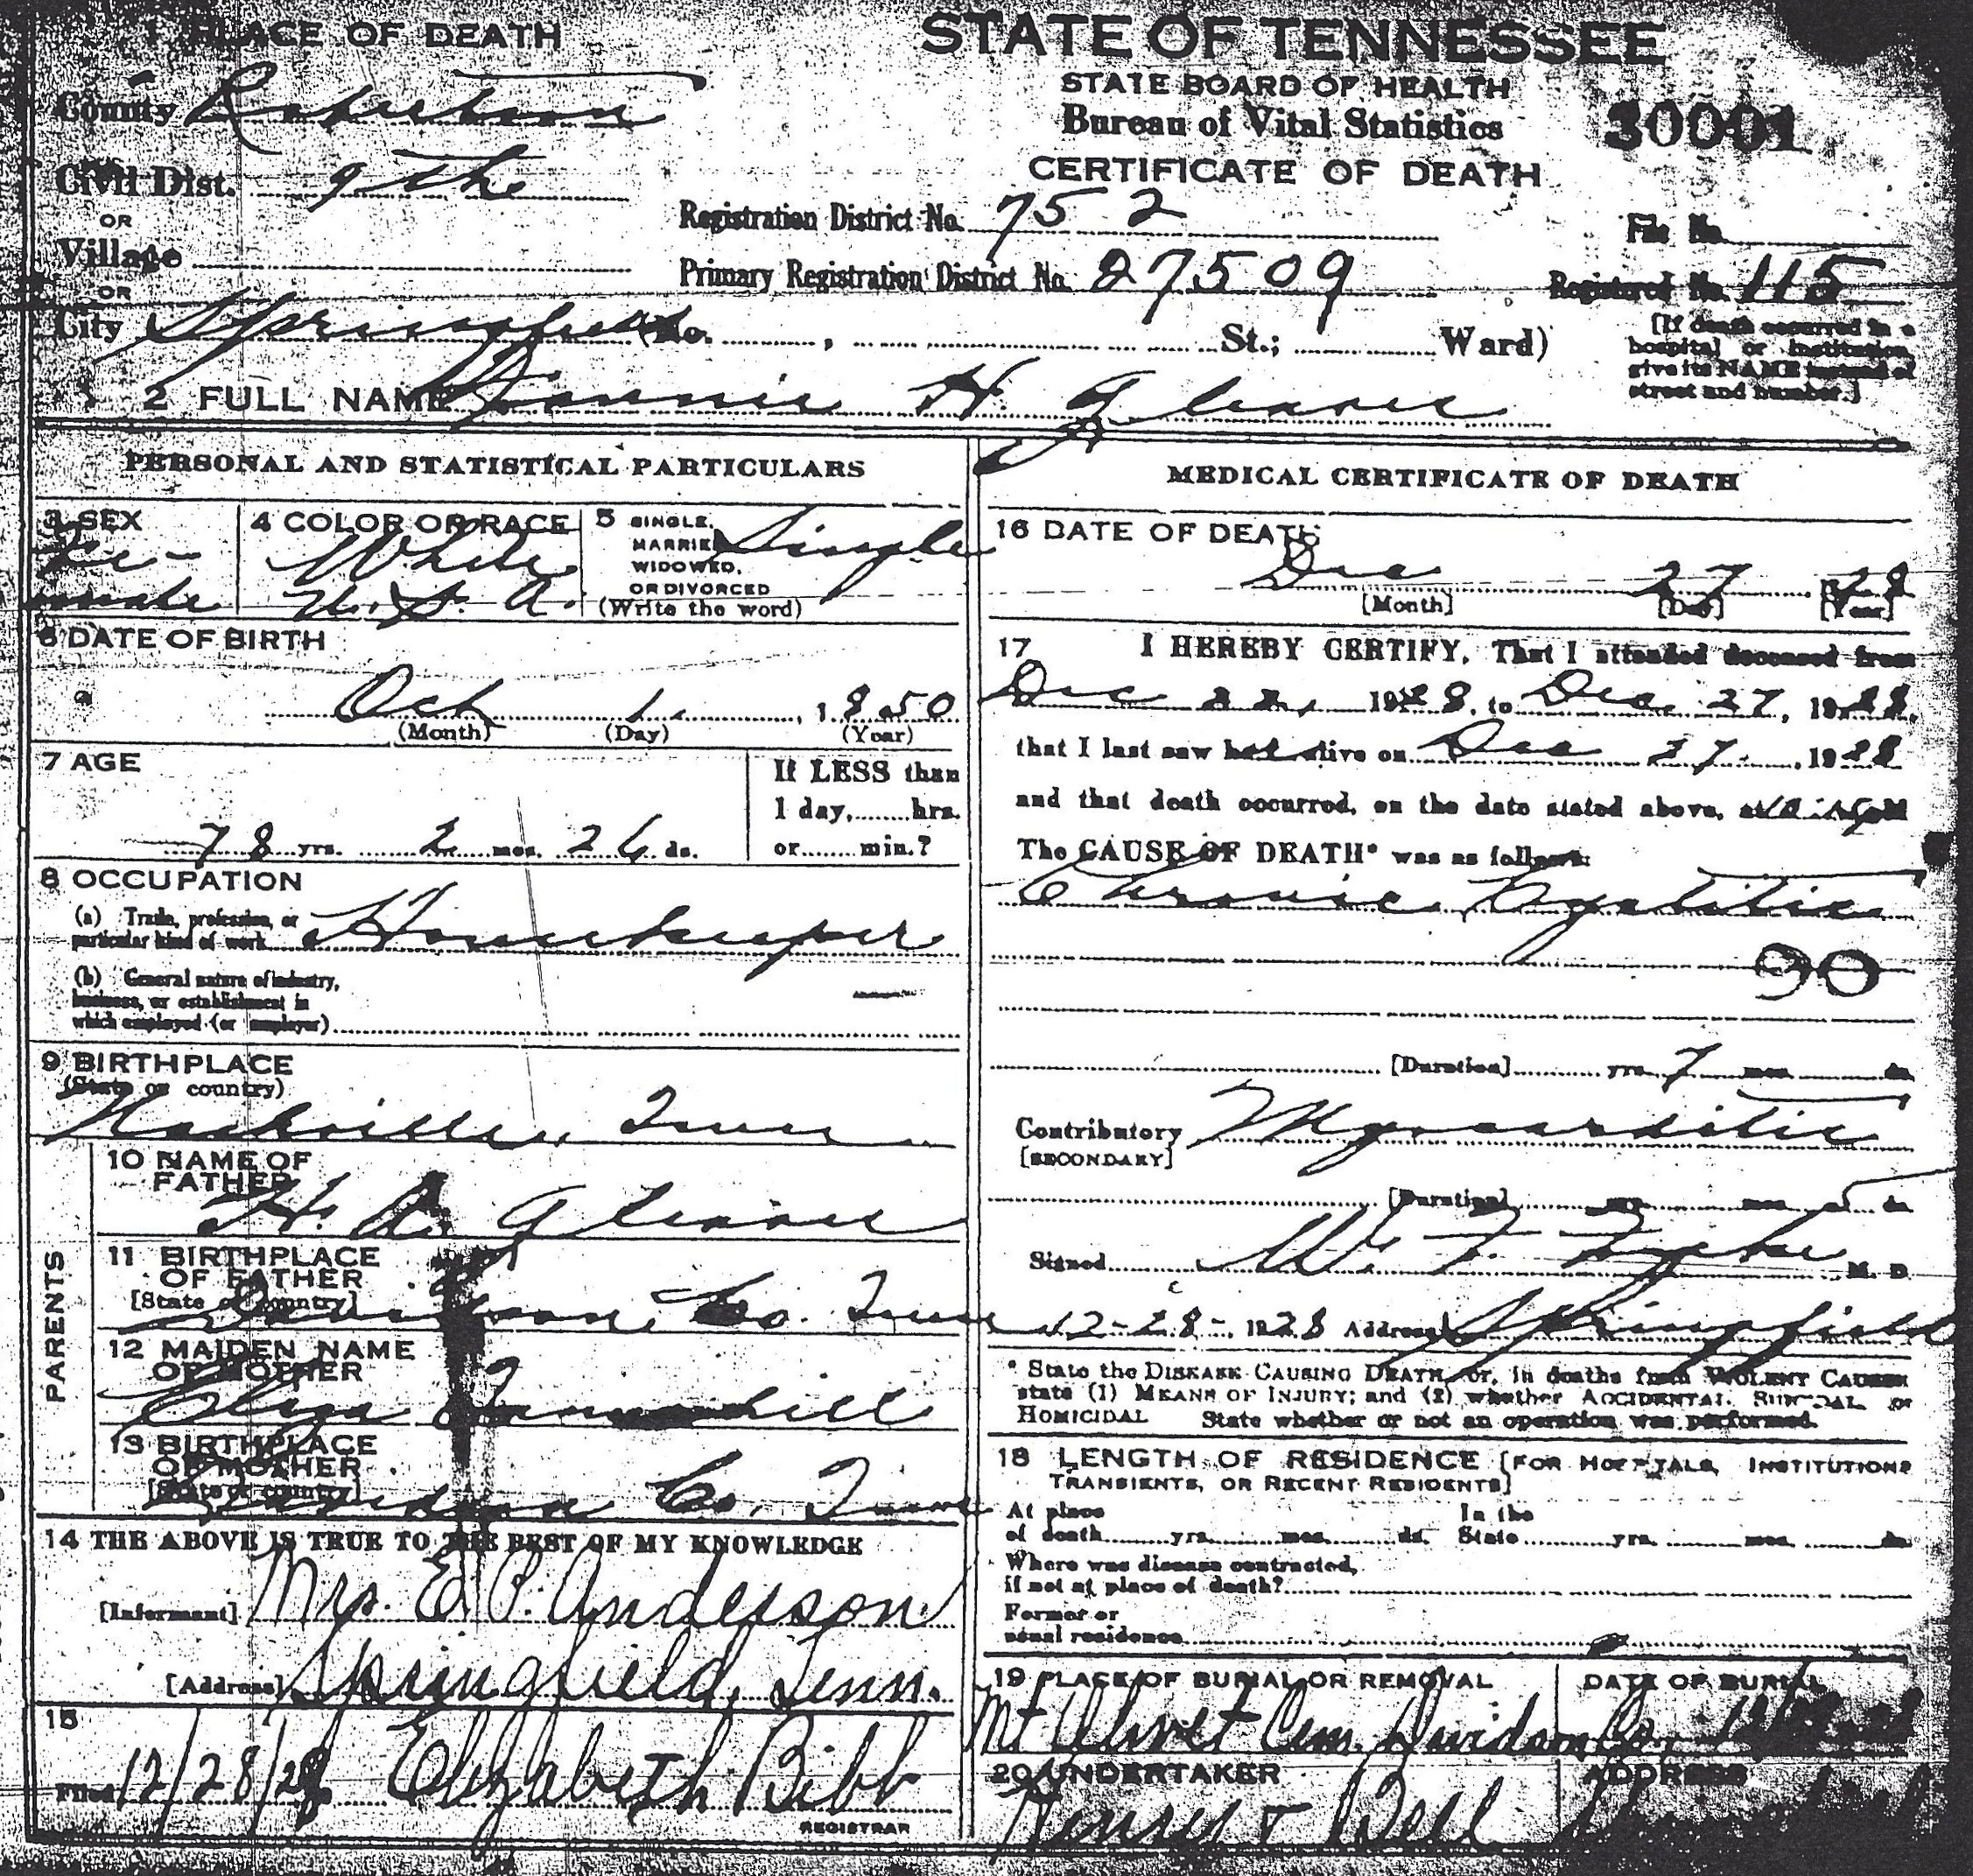 1 PLACE OF DEATH
STATE OF TENNESSEE
STATE BOARD OF HEALTH
Bureau of Vital Statistics
CERTIFICATE OF DEATH
30001
County Robertson
Civil Dist. 9 The
OR
Village
OR
City Springfield (No. , St.; Ward)
Registration District No. 752
Primary Registration District No. 27509
File No.
Registered No. 115
[If death occurred in a
hospital or institution,
give its NAME instead of
street and number.]
2 FULL NAME H. Gleaves
PERSONAL AND STATISTICAL PARTICULARS
3 SEX
Fe-
male
4 COLOR OR RACE
White
U.S.A.
5 SINGLE,
MARRIED
WIDOWED,
OR DIVORCED
(Write the word)
Single
6 DATE OF BIRTH
Oct 1. , 1850
(Month) (Day) (Year)
7 AGE
78 yrs. 2 mos. 26 ds.
If LESS than
1 day, hrs.
or min.?
8 OCCUPATION
(a) Trade, profession, or
particular kind of work Housekeeper
(b) General nature of industry,
business, or establishment in
which employed (or employer)
9 BIRTHPLACE
(State or country)
Nashville, Tenn
PARENTS
10 NAME OF
FATHER
H. A. Gleaves
11 BIRTHPLACE
OF FATHER
[State or country]
Davidson Co. Tenn
12 MAIDEN NAME
OF MOTHER
13 BIRTHPLACE
OF MOTHER
[State or country]
Davidson Co. Tenn
14 THE ABOVE IS TRUE TO THE BEST OF MY KNOWLEDGE
[Informant] Mrs. E. P. Anderson
[Address] Springfield, Tenn.
15
Filed 12/28/28 Elizabeth Bibb
REGISTRAR
MEDICAL CERTIFICATE OF DEATH
16 DATE OF DEATH
Dec 27 1928
[Month] [Day] [Year]
17 I HEREBY CERTIFY, That I attended deceased from
Dec 22, 1928, to Dec. 27, 1928,
that I last saw her alive on Dec 27, 1928
and that death occurred, on the date stated above, at M
The CAUSE OF DEATH* was as follows:
Chronic Cystitis
90
[Duration] yrs 7 mos ds
Contributory Myocarditis
[SECONDARY]
[Duration] yrs mos 5 ds
Signed W. F. Fyke M. D.
12-28-, 1928 Address Springfield
* State the DISEASE CAUSING DEATH, or, in deaths from VIOLENT CAUSES
state (1) MEANS OF INJURY; and (2) whether ACCIDENTAL, SUICIDAL or
HOMICIDAL State whether or not an operation was performed.
18 LENGTH OF RESIDENCE [FOR HOSPITALS, INSTITUTIONS
TRANSIENTS, OR RECENT RESIDENTS]
At place
of death yrs mos ds.
In the
State yrs mos ds
Where was disease contracted,
if not at place of death?
Former or
usual residence
19 PLACE OF BURIAL OR REMOVAL
DATE OF BURIAL
Mt Olivet Cem. Davidson Co.
20 UNDERTAKER
ADDRESS
Henry & Bell